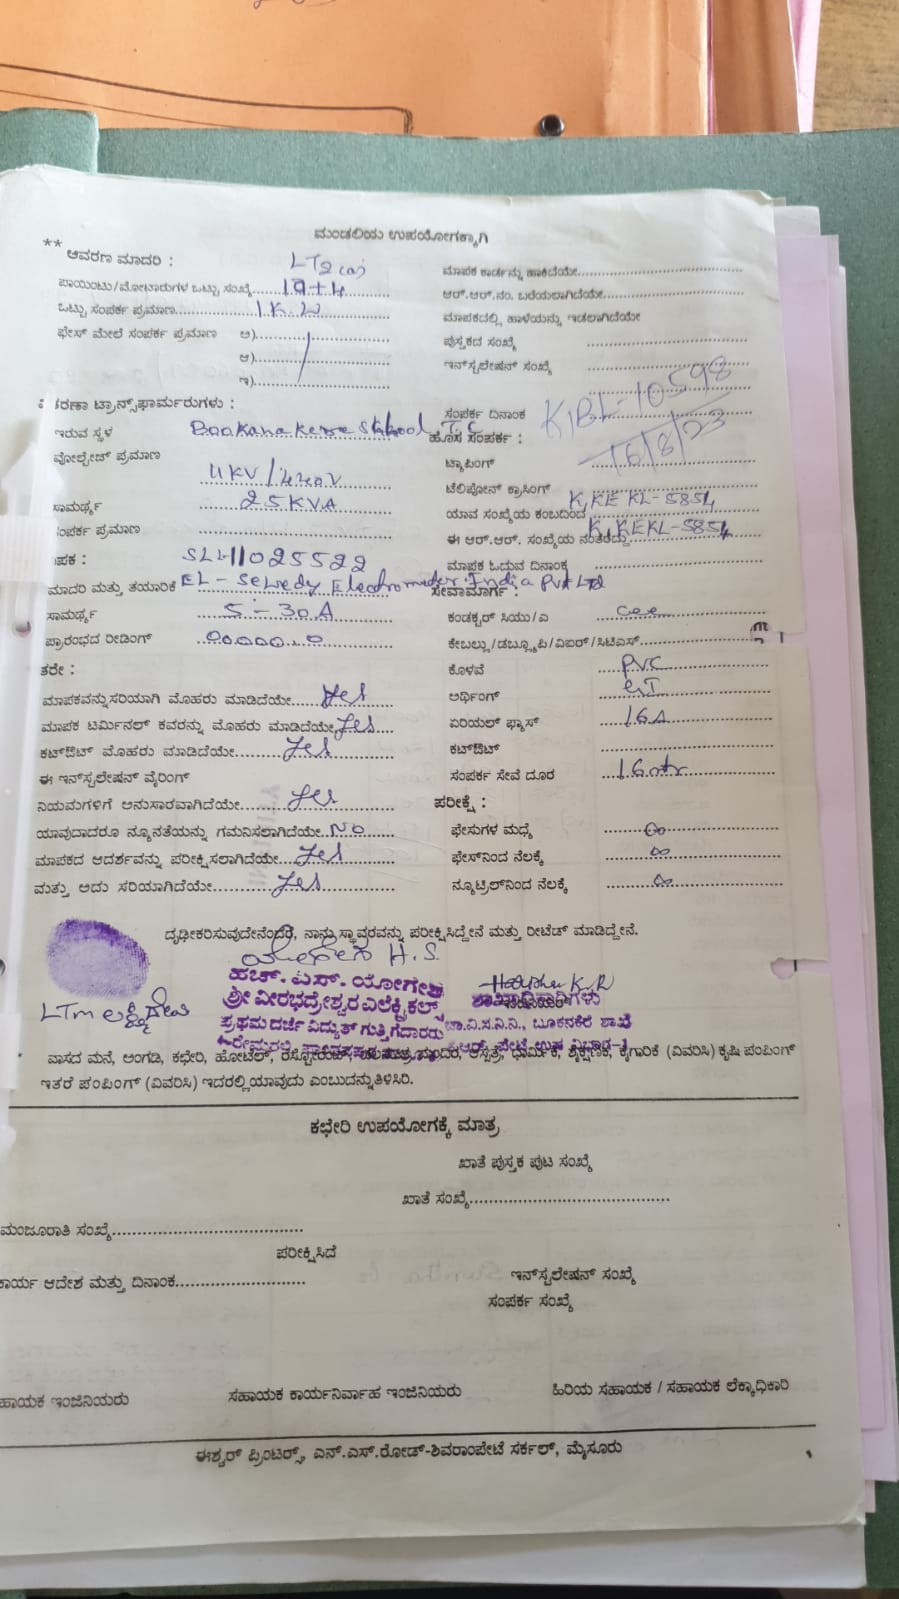 ಮಂಡಲಿಯ ಉಪಯೋಗಕ್ಕಾಗಿ
** ಆವರಣ ಮಾದರಿ : LT2 (a)
ಪಾಯಿಂಟು/ಮೋಟಾರುಗಳ ಒಟ್ಟು ಸಂಖ್ಯೆ
ಒಟ್ಟು ಸಂಪರ್ಕ ಪ್ರಮಾಣ 1 K.W
ಫೇಸ್ ಮೇಲೆ ಸಂಪರ್ಕ ಪ್ರಮಾಣ ಅ)
ಆ)
ಇ)
ಮಾಪಕ ಕಾರ್ಡನ್ನು ಹಾಕಿದೆಯೇ
ಆರ್.ಆರ್.ನಂ. ಬರೆಯಲಾಗಿದೆಯೇ
ಮಾಪಕದಲ್ಲಿ ಹಾಳೆಯನ್ನು ಇಡಲಾಗಿದೆಯೇ
ಪುಸ್ತಕದ ಸಂಖ್ಯೆ
ಇನ್‌ಸ್ಟಲೇಷನ್ ಸಂಖ್ಯೆ
ಸಂಪರ್ಕ ದಿನಾಂಕ KBL-10598
16/8/23
ಟ್ರಾನ್ಸ್‌ಫಾರ್ಮರುಗಳು :
ಇರುವ ಸ್ಥಳ
ವೋಲ್ಟೇಜ್ ಪ್ರಮಾಣ 11KV/440V
ಸಾಮರ್ಥ್ಯ 25KVA
ಸಂಪರ್ಕ ಪ್ರಮಾಣ
ಹೊಸ ಸಂಪರ್ಕ :
ಟ್ಯಾಪಿಂಗ್
ಟೆಲಿಪೋನ್ ಕ್ರಾಸಿಂಗ್
ಯಾವ ಸಂಖ್ಯೆಯ ಕಂಬದಿಂದ K,KEKL-5854
ಈ ಆರ್.ಆರ್. ಸಂಖ್ಯೆಯ ನಂತರದ್ದು K,KEKL-5854
ಮಾಪಕ ಓದುವ ದಿನಾಂಕ
ಮಾದರಿ ಮತ್ತು ತಯಾರಿಕೆ
ಸಾಮರ್ಥ್ಯ 5-30A
ಪ್ರಾರಂಭದ ರೀಡಿಂಗ್
ಸೇವಾಮಾರ್ಗ :
ಕಂಡಕ್ಟರ್ ಸಿಯು/ಎ
ಕೇಬಲ್ಲು/ಡಬ್ಲ್ಯೂಪಿ/ವಿಐಆರ್/ಸಿಟಿಎಸ್
ಕೊಳವೆ PVC
ಅರ್ಥಿಂಗ್ GI
ಏರಿಯಲ್ ಫ್ಯೂಸ್ 16A
ಕಟ್‌ಔಟ್
ಸಂಪರ್ಕ ಸೇವೆ ದೂರ 16mtr
ಮಾಪಕವನ್ನುಸರಿಯಾಗಿ ಮೊಹರು ಮಾಡಿದೆಯೇ yes
ಮಾಪಕ ಟರ್ಮಿನಲ್ ಕವರನ್ನು ಮೊಹರು ಮಾಡಿದೆಯೇ yes
ಕಟ್‌ಔಟ್ ಮೊಹರು ಮಾಡಿದೆಯೇ yes
ಈ ಇನ್‌ಸ್ಟಲೇಷನ್ ವೈರಿಂಗ್
ನಿಯಮಗಳಿಗೆ ಅನುಸಾರವಾಗಿದೆಯೇ yes
ಯಾವುದಾದರೂ ನ್ಯೂನತೆಯನ್ನು ಗಮನಿಸಲಾಗಿದೆಯೇ NO
ಮಾಪಕದ ಆದರ್ಶವನ್ನು ಪರೀಕ್ಷಿಸಲಾಗಿದೆಯೇ yes
ಮತ್ತು ಅದು ಸರಿಯಾಗಿದೆಯೇ yes
ಪರೀಕ್ಷೆ :
ಫೇಸುಗಳ ಮಧ್ಯೆ ∞
ಫೇಸ್‌ನಿಂದ ನೆಲಕ್ಕೆ ∞
ನ್ಯೂಟ್ರಿಲ್‌ನಿಂದ ನೆಲಕ್ಕೆ ∞
ದೃಢೀಕರಿಸುವುದೇನೆಂದರೆ, ನಾನು ಸ್ಥಾವರವನ್ನು ಪರೀಕ್ಷಿಸಿದ್ದೇನೆ ಮತ್ತು ರೀಟೆಡ್ ಮಾಡಿದ್ದೇನೆ.
ಯೋಗೇಶ H.S
ಹೆಚ್.ಎಸ್. ಯೋಗೇಶ
ಶ್ರೀ ವೀರಭದ್ರೇಶ್ವರ ಎಲೆಕ್ಟ್ರಿಕಲ್ಸ್
ಪ್ರಥಮ ದರ್ಜೆ ವಿದ್ಯುತ್ ಗುತ್ತಿಗೆದಾರರು
ಶಾಖಾಧಿಕಾರಿಗಳು
ಚಾ.ವಿ.ಸ.ನಿ.ನಿ., ಬೂಕನಕೆರೆ ಶಾಖೆ
LTM ಲಕ್ಷ್ಮಿದೇವಿ
ವಾಸದ ಮನೆ, ಅಂಗಡಿ, ಕಛೇರಿ, ಹೋಟೆಲ್, ಆಸ್ಪತ್ರೆ, ಧಾರ್ಮಿಕ, ಶೈಕ್ಷಣಿಕ, ಕೈಗಾರಿಕೆ (ವಿವರಿಸಿ) ಕೃಷಿ ಪಂಪಿಂಗ್
ಇತರೆ ಪಂಪಿಂಗ್ (ವಿವರಿಸಿ) ಇದರಲ್ಲಿ ಯಾವುದು ಎಂಬುದನ್ನು ತಿಳಿಸಿರಿ.
ಕಛೇರಿ ಉಪಯೋಗಕ್ಕೆ ಮಾತ್ರ
ಖಾತೆ ಪುಸ್ತಕ ಪುಟ ಸಂಖ್ಯೆ
ಖಾತೆ ಸಂಖ್ಯೆ
ಮಂಜೂರಾತಿ ಸಂಖ್ಯೆ
ಪರೀಕ್ಷಿಸಿದೆ
ಕಾರ್ಯ ಆದೇಶ ಮತ್ತು ದಿನಾಂಕ
ಇನ್‌ಸ್ಟಲೇಷನ್ ಸಂಖ್ಯೆ
ಸಂಪರ್ಕ ಸಂಖ್ಯೆ
ಹಾಯಕ ಇಂಜಿನಿಯರು ಸಹಾಯಕ ಕಾರ್ಯನಿರ್ವಾಹ ಇಂಜಿನಿಯರು ಹಿರಿಯ ಸಹಾಯಕ / ಸಹಾಯಕ ಲೆಕ್ಕಾಧಿಕಾರಿ
ಈಶ್ವರ್ ಪ್ರಿಂಟರ್ಸ್, ಎನ್.ಎಸ್.ರೋಡ್-ಶಿವರಾಂಪೇಟೆ ಸರ್ಕಲ್, ಮೈಸೂರು